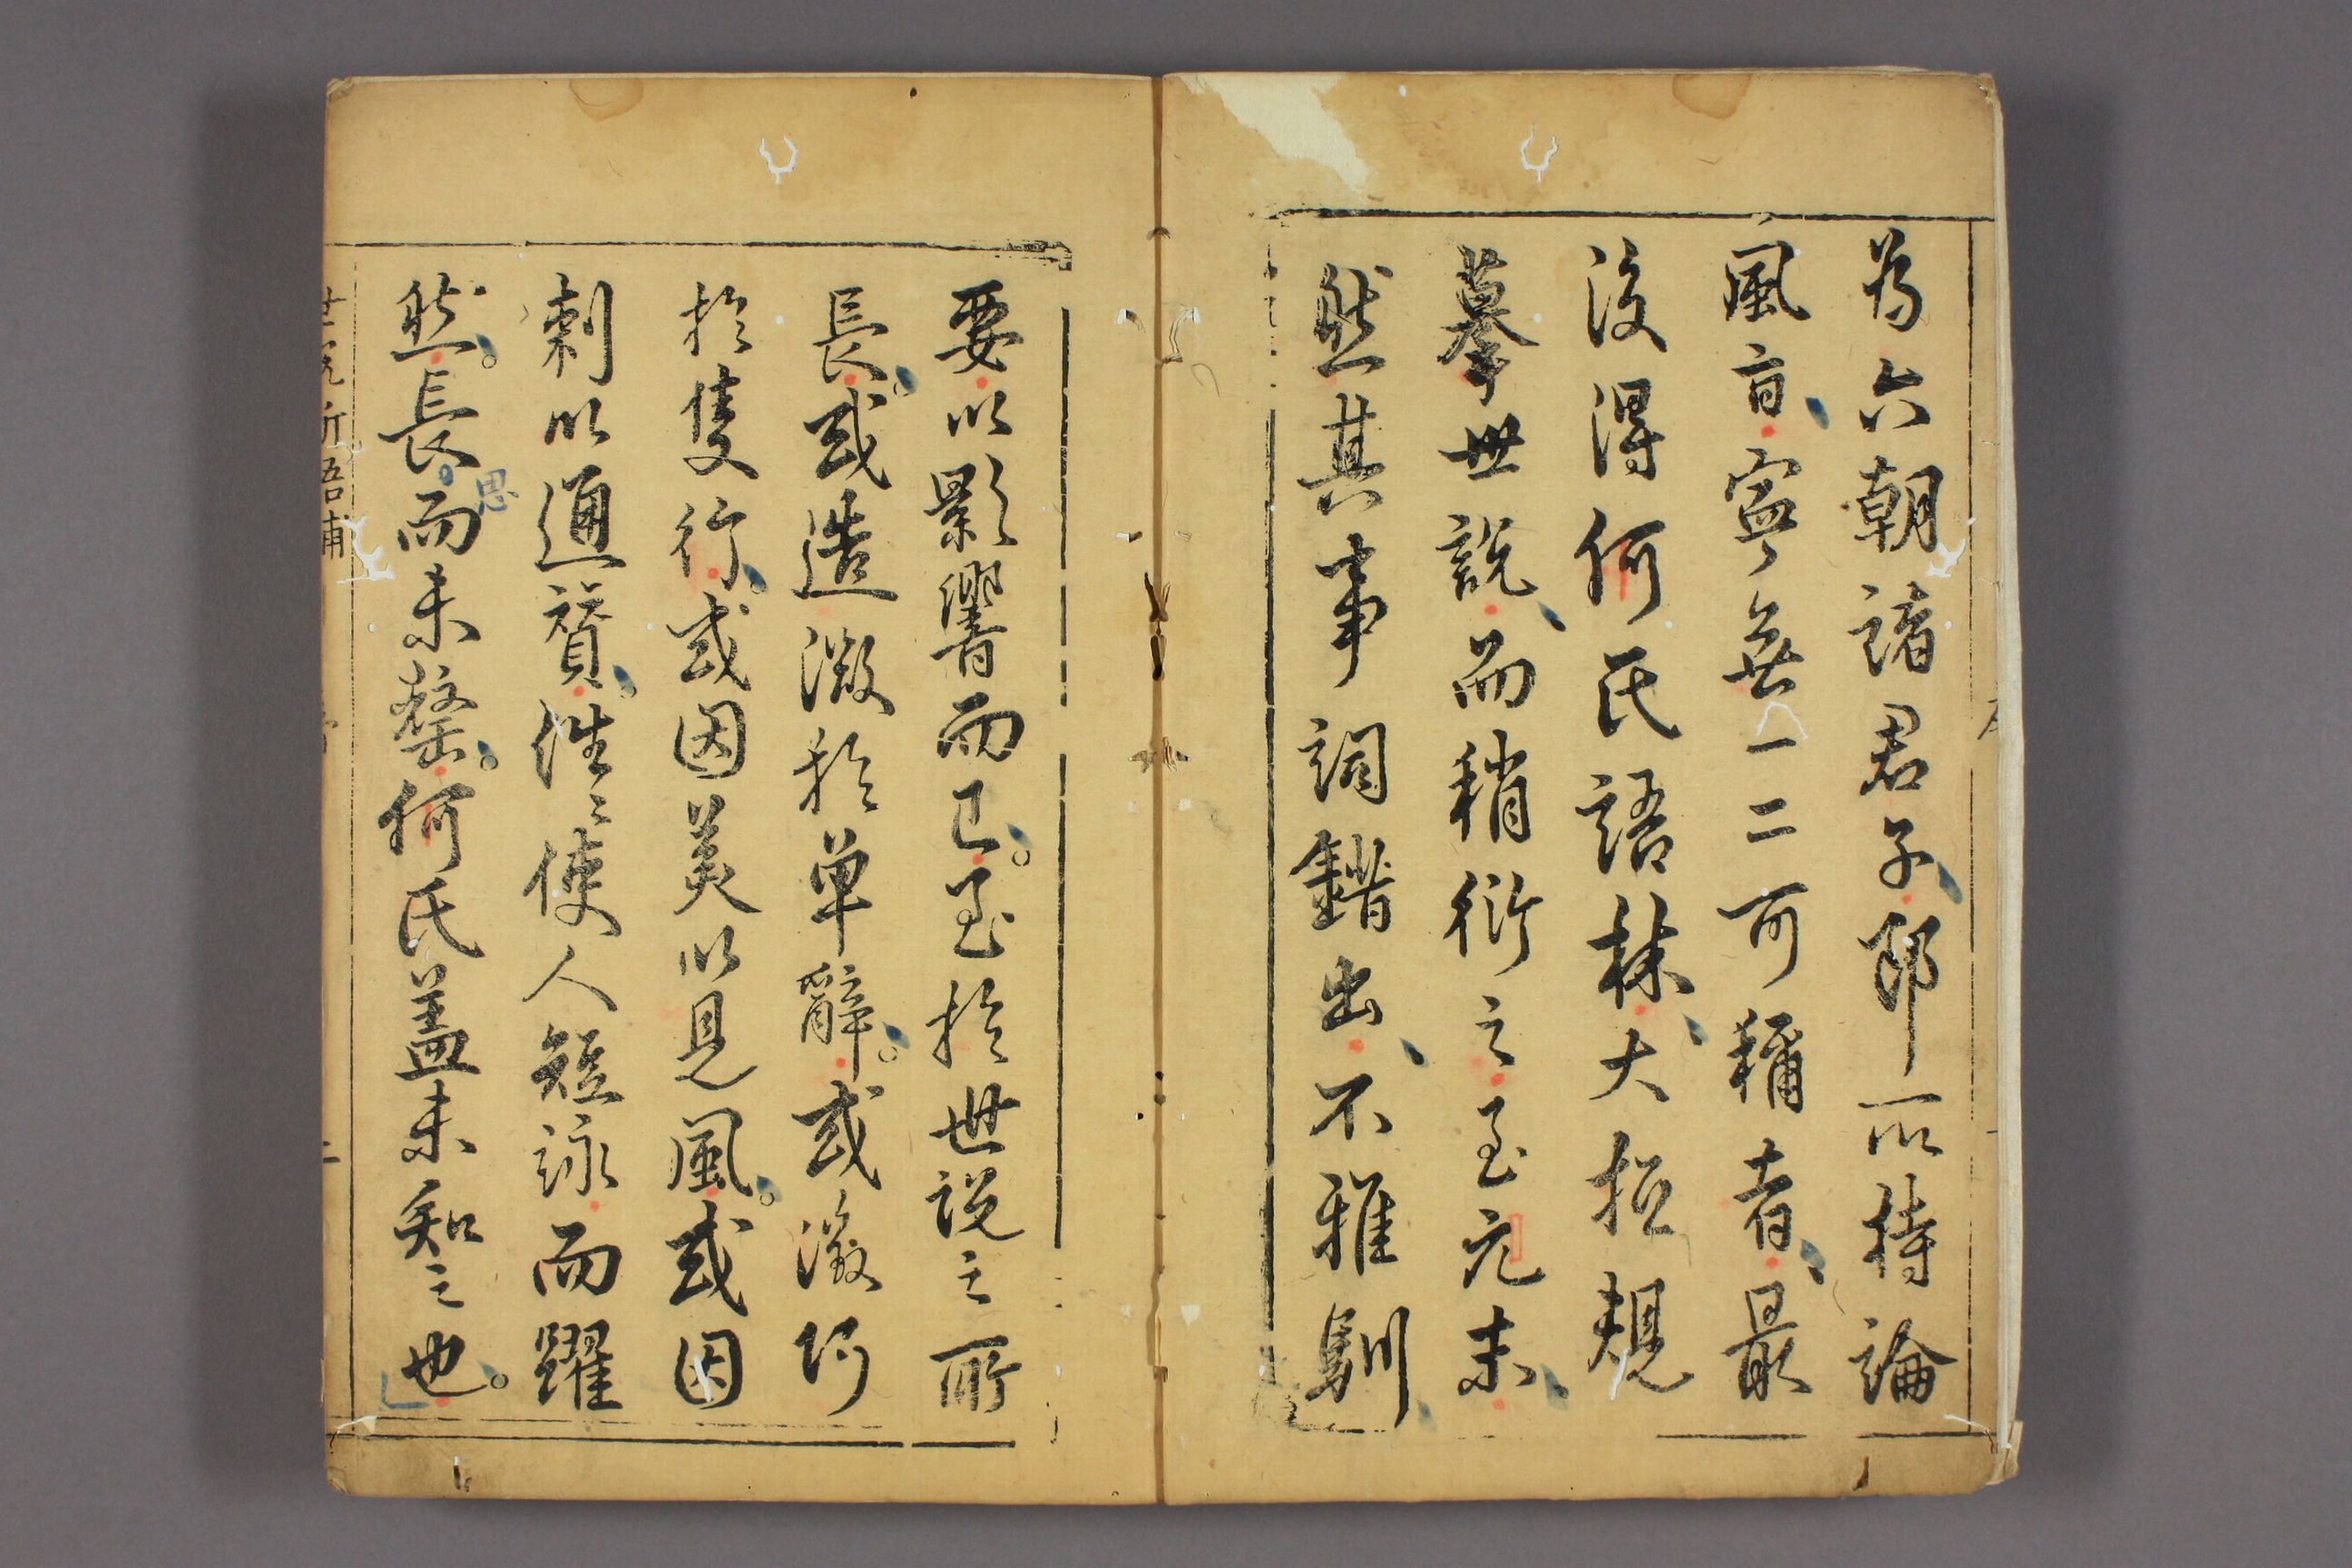 為六朝諸君子即所持論
風旨寧無一二可稱者最
後得何氏語林大抵規
摹世說而稍衍之至元末
然其事詞錯出不雅馴
要以影響而已至於世說之所
長或造微於單辭或徵巧
於隻行或因美以見風或因
刺以通贊往〻使人短詠而躍
然長而未罄何氏蓋未知之也
思
世說新語補
二